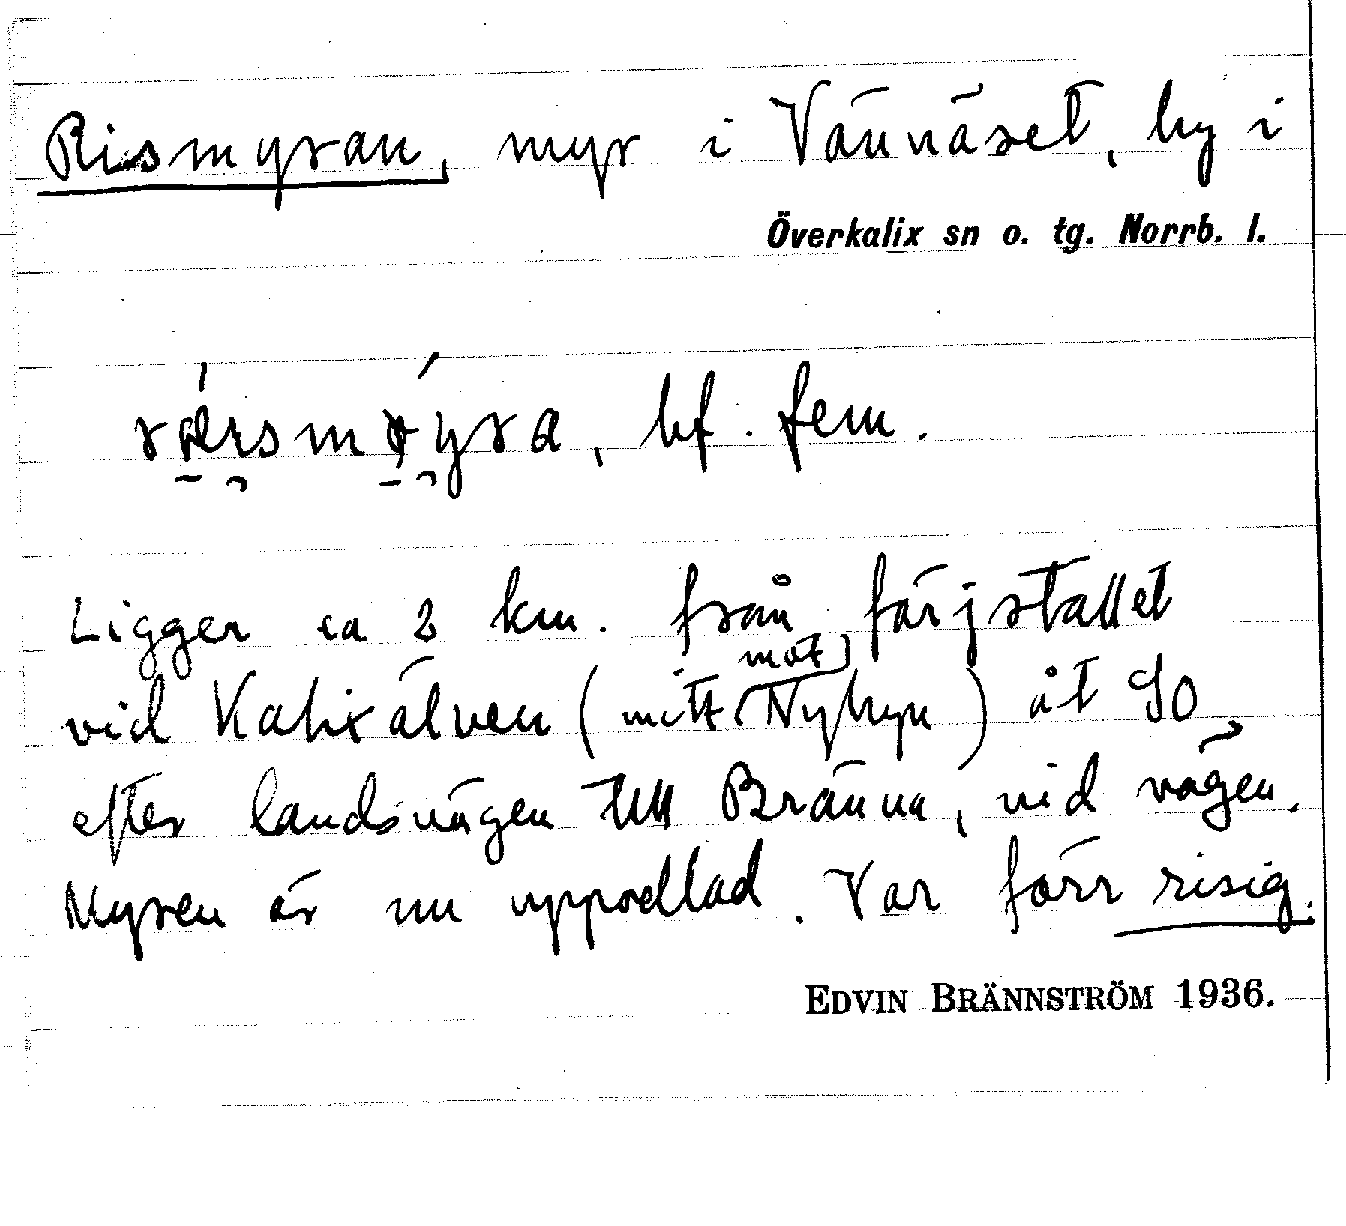 Rismyran, myr i Vännäset, by i
Överkalix sn o. tg. Norrb. l.
bf. fem.
Ligger ca 2 km. från färjstället
vid Kalixälven (mitt mot Nybyn) åt SO
efter landsvägen till Bränna, vid vägen.
Myren är nu uppodlad. Var förr risig.
EDVIN BRÄNNSTRÖM 1936.